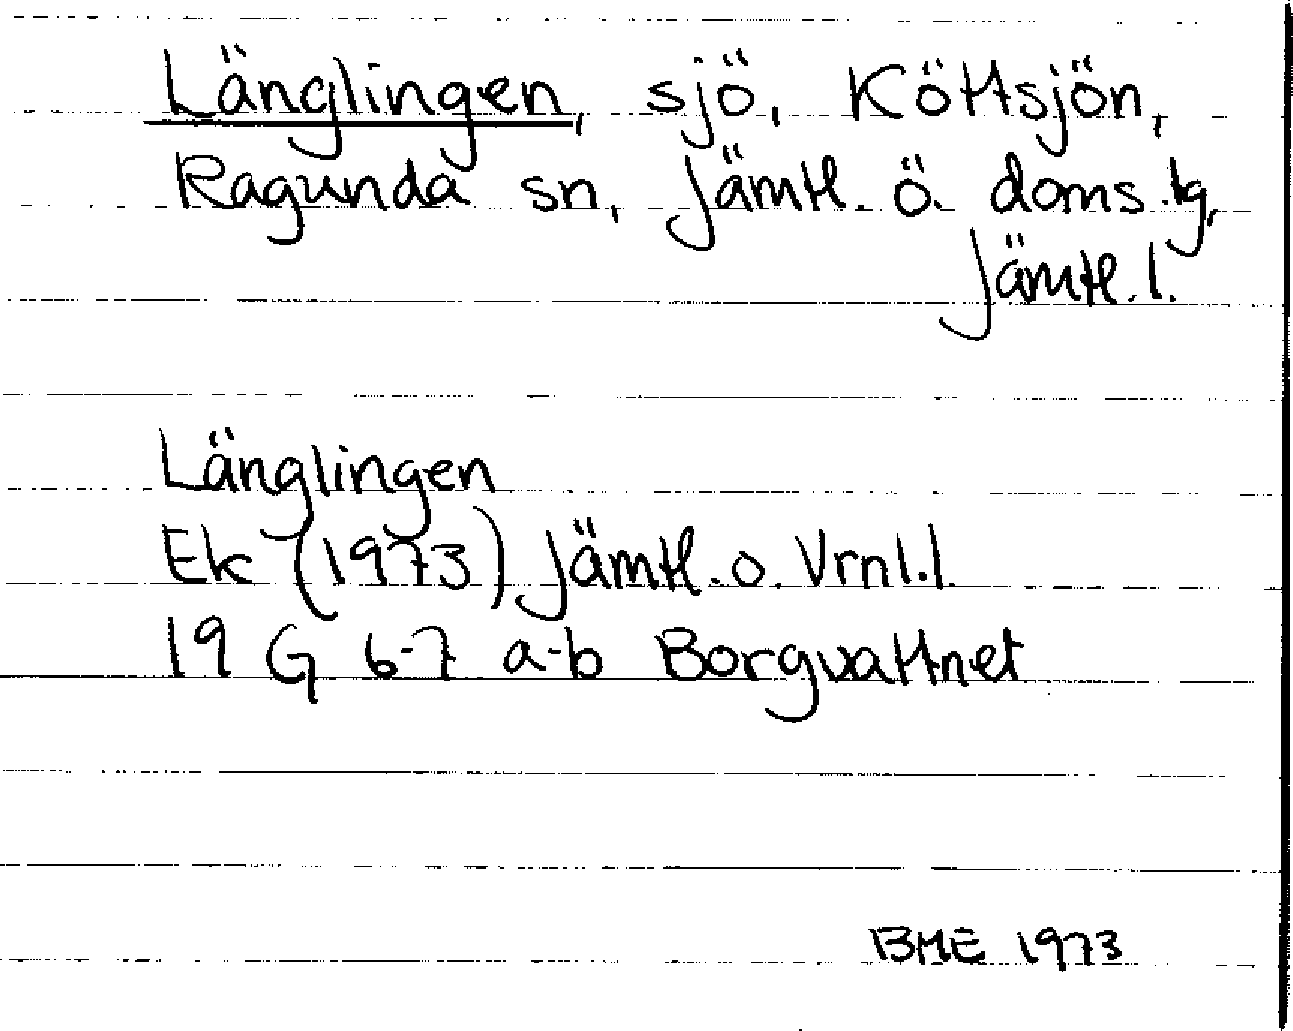 Länglingen, sjö, Köttsjön,
Ragunda sn, Jämtl. ö. doms.lg,
Jämtl. l.
Länglingen
Ek (1973) Jämtl. o. Vrnl. l.
19 G 6-7 a-b Borgvattnet
BME 1973